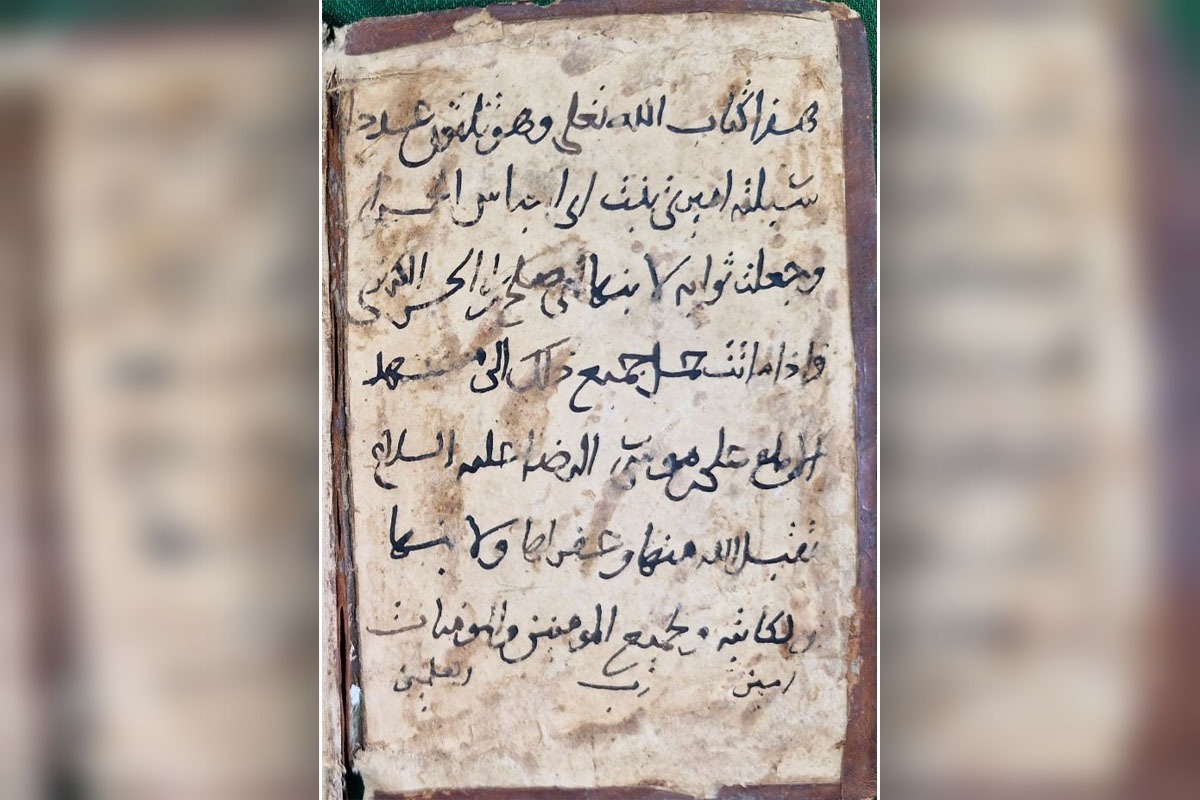 هذا كتاب الله تعلى وهو ثلثون عددا
سبلته امين بنت ابى العباس
وجعلت ثوابه لابنها ابى صلح بن الحسن
واذا ماتت حمل جميع ذلك الى مشهد
الامام على موسى الرضا عليه السلام
تقبل الله منها وغفر لها ولابنها
ولكاتبه ولجميع المومنين والمومنات
امين رب العلمين